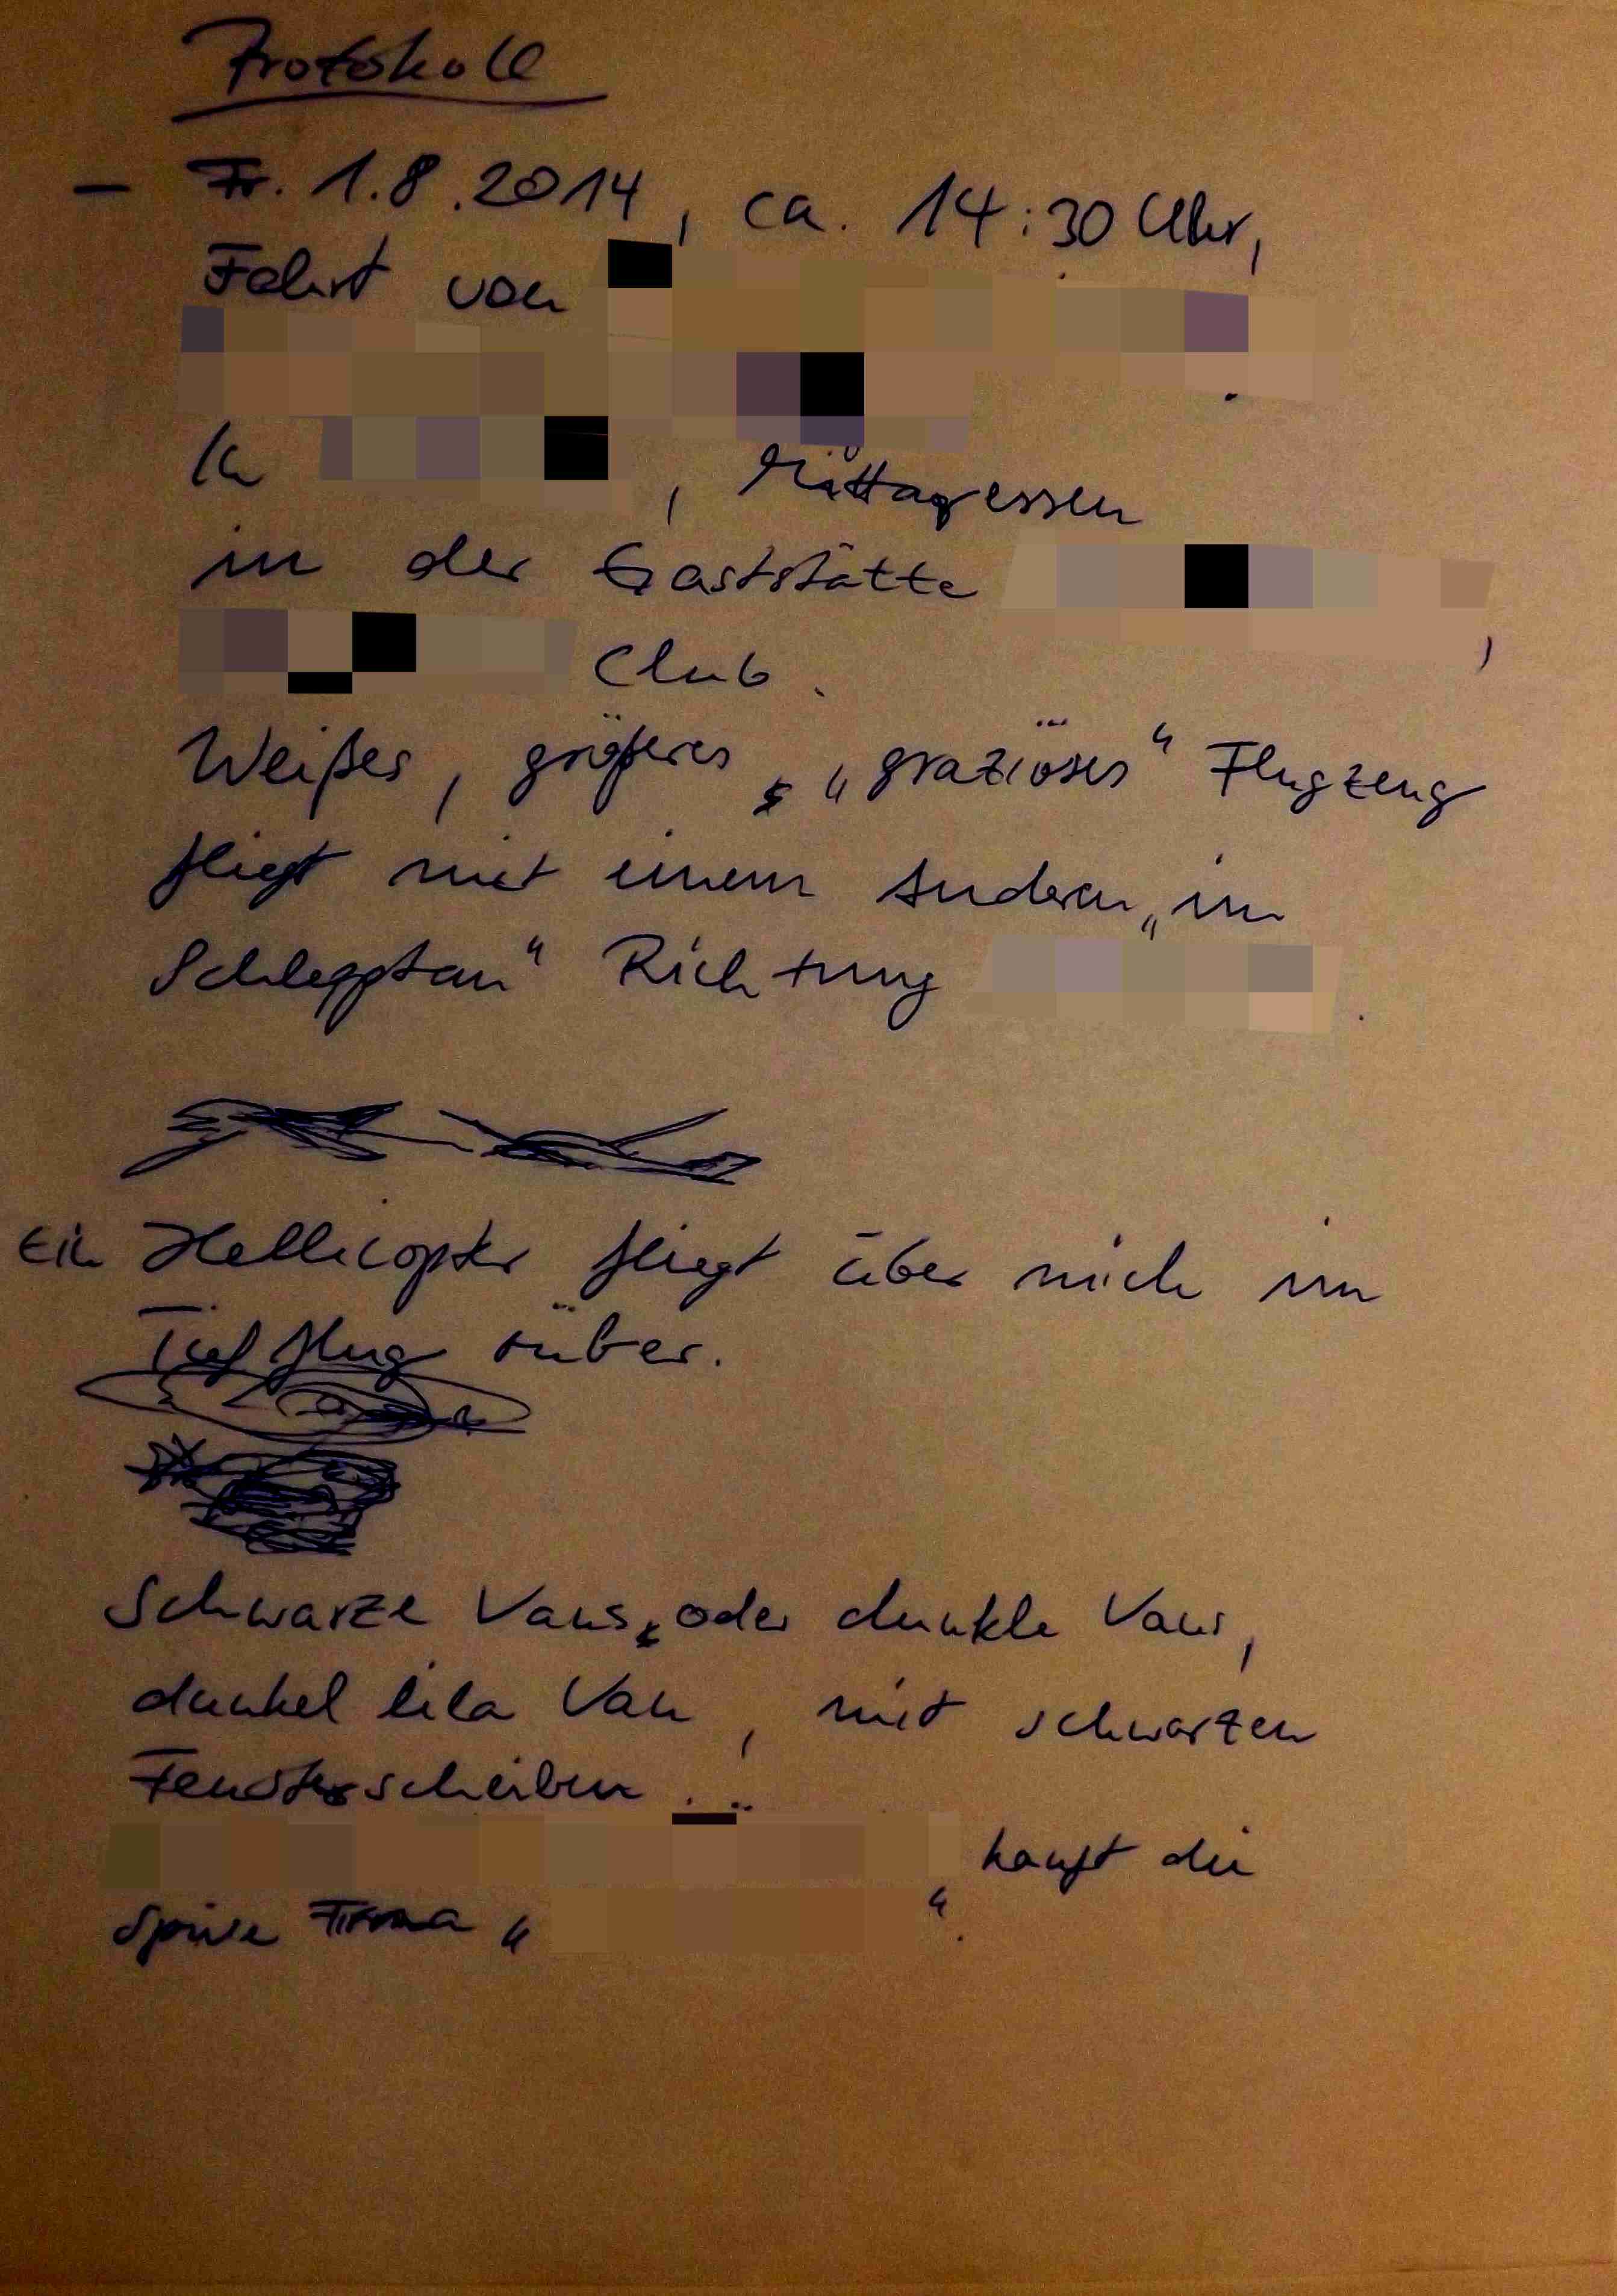 Protokoll
– Fr. 1.8.2014, ca. 14:30 Uhr,
Fahrt von
In , Mittagessen
in der Gaststätte ,
Club.
Weißes, größeres, "graziöses" Flugzeug
fliegt mit einem Anderen "im
Schlepptau" Richtung .
Ein Hellicopter fliegt über mich im
Tiefflug rüber.
Schwarze Vans, oder dunkle Vans,
dunkel lila Van, mit schwarzen
Fensterscheiben ...
kauft die
Firma " ".